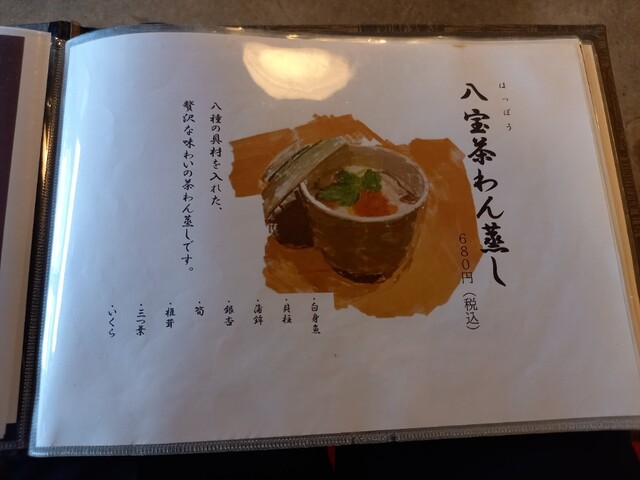 はっぽう
八宝茶わん蒸し
680円(税込)
八種の具材を入れた、
贅沢な味わいの茶わん蒸しです。
・白身魚
・貝柱
・蒲鉾
・銀杏
・筍
・椎茸
・三つ葉
・いくら